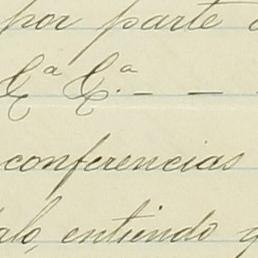 por parte
Cª Cª. — —
conferencias
alo, entiendo